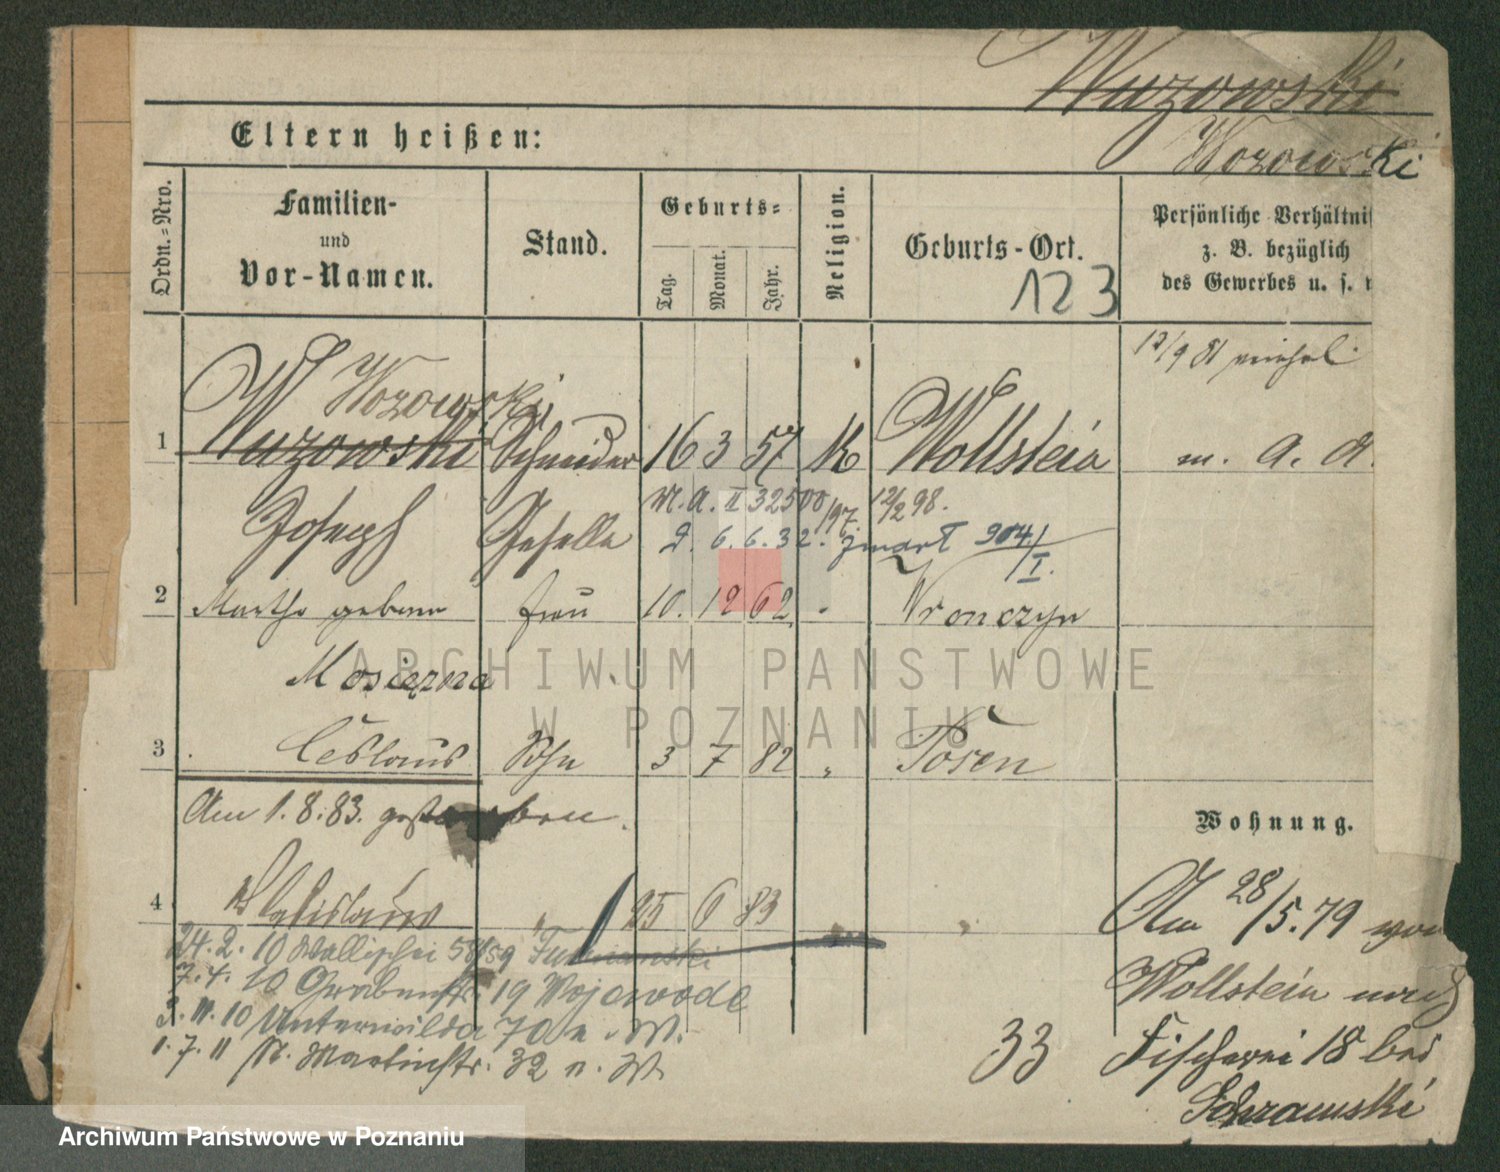 Wuzowski
Eltern heißen:
Wozowski
Ordn.-Nro.
Familien-
und
Vor-Namen.
Stand.
Geburts-
Tag.
Monat.
Jahr.
Religion.
Geburts-Ort.
123
Persönliche Verhältni
z. B. bezüglich
des Gewerbes u. s.
12/9 81
Wozowski
1 Wuzowski Schneider 16 3 57 K Wollstein m. a. A.
M. A. II 32500/97. 12/2 98.
Joseph Geselle
D. 6. 6. 32. zmarł 904/I.
2 Martha geborne Frau 10. 12 62 Wronczyn
Mosiężna
3 Ceslaus Sohn 3 7 82 " Posen
Am 1. 8. 83. gestorben.
Wohnung.
4 Ladislaus " 25 6 83
Am 28/5. 79 von
24. 2. 10 Wallischei 58/59 Furmanski
7. 4. 10 Grabenstr. 19 Wojewode
Wollstein nach
3. 11. 10 Unterwilda 70 n. W.
33
Fischerei 18 bei
1. 7. 11 St. Martinstr. 32 n. W.
Schramski
ARCHIWUM PAŃSTWOWE
W POZNANIU
Archiwum Państwowe w Poznaniu